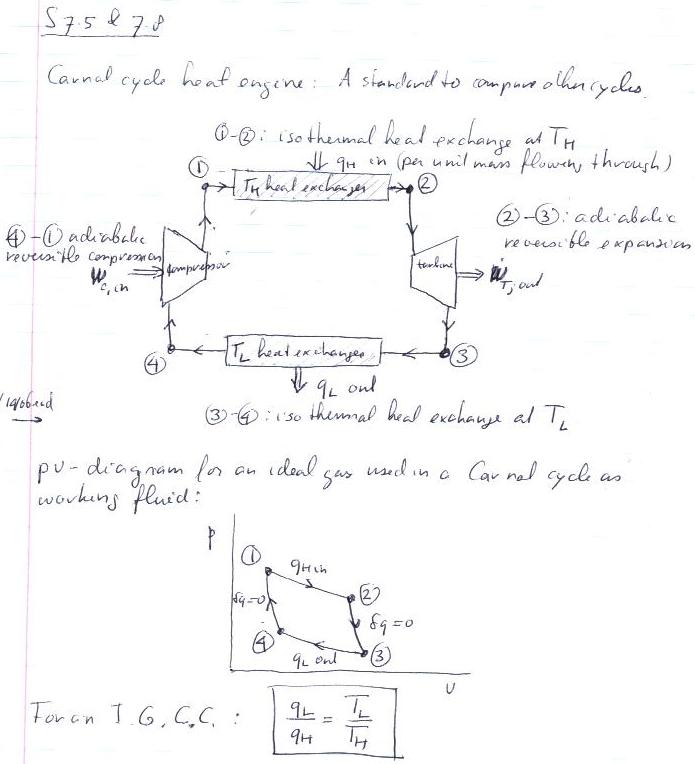 S 7.5 & 7.8
Carnot cycle heat engine: A standard to compare other cycles.
①-②: isothermal heat exchange at T_H
① ⇓ q_H in (per unit mass flowing through)
T_H heat exchanger ②
④-① adiabatic
reversible compression
Ẇ_C, in
compressor
turbine
②-③: adiabatic
reversible expansion
Ẇ_T, out
④ T_L heat exchanger ③
⇓ q_L out
③-④: isothermal heat exchange at T_L
pv-diagram for an ideal gas used in a Carnot cycle as
working fluid:
P
① q_H in
δq=0 ②
④ δq=0
q_L out ③
v
For an I.G.C.C.: q_L/q_H = T_L/T_H